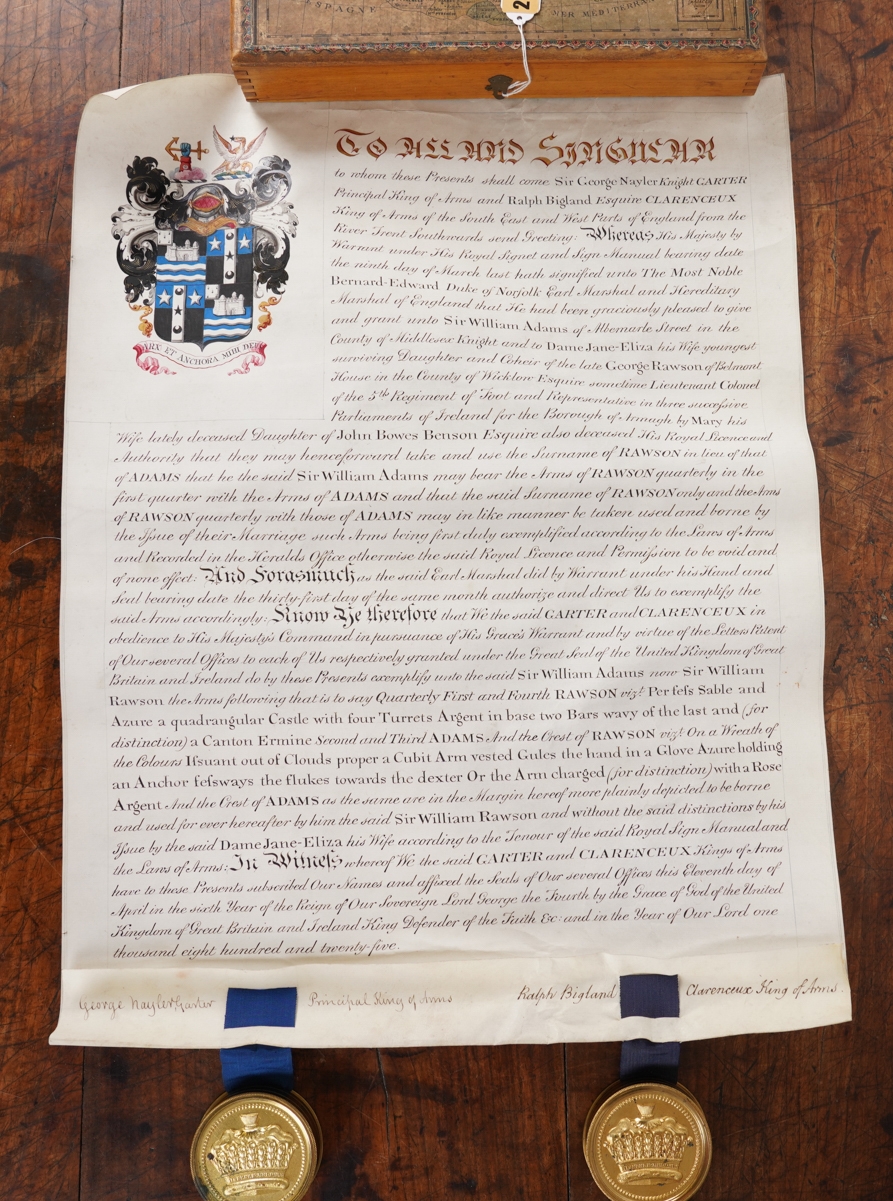 ESPAGNE
MER MEDITERRA
2
TO ALL AND SINGULAR
to whom these Presents shall come Sir George Nayler Knight GARTER
Principal King of Arms and Ralph Bigland Esquire CLARENCEUX
King of Arms of the South East and West Parts of England from the
River Trent Southwards send Greeting: Whereas His Majesty by
Warrant under His Royal Signet and Sign Manual bearing date
the ninth day of March last hath signified unto The Most Noble
Bernard-Edward Duke of Norfolk Earl Marshal and Hereditary
Marshal of England that He had been graciously pleased to give
and grant unto Sir William Adams of Albemarle Street in the
County of Middlesex Knight and to Dame Jane-Eliza his Wife youngest
surviving Daughter and Coheir of the late George Rawson of Belmont
House in the County of Wicklow Esquire sometime Lieutenant Colonel
of the 5th Regiment of Foot and Representative in three successive
Parliaments of Ireland for the Borough of Armagh by Mary his
LUX ET ANCHORA MIHI DEUS
Wife lately deceased Daughter of John Bowes Benson Esquire also deceased His Royal Licence and
Authority that they may henceforward take and use the Surname of RAWSON in lieu of that
of ADAMS that he the said Sir William Adams may bear the Arms of RAWSON quarterly in the
first quarter with the Arms of ADAMS and that the said Surname of RAWSON only and the Arms
of RAWSON quarterly with those of ADAMS may in like manner be taken used and borne by
the Issue of their Marriage such Arms being first duly exemplified according to the Laws of Arms
and Recorded in the Heralds Office otherwise the said Royal Licence and Permission to be void and
of none effect: And Forasmuch as the said Earl Marshal did by Warrant under his Hand and
Seal bearing date the thirty-first day of the same month authorize and direct Us to exemplify the
said Arms accordingly: Know Ye therefore that We the said GARTER and CLARENCEUX in
obedience to His Majesty's Command in pursuance of His Grace's Warrant and by virtue of the Letters Patent
of Our several Offices to each of Us respectively granted under the Great Seal of the United Kingdom of Great
Britain and Ireland do by these Presents exemplify unto the said Sir William Adams now Sir William
Rawson the Arms following that is to say Quarterly First and Fourth RAWSON vizt. Per fess Sable and
Azure a quadrangular Castle with four Turrets Argent in base two Bars wavy of the last and (for
distinction) a Canton Ermine Second and Third ADAMS And the Crest of RAWSON vizt. On a Wreath of
the Colours Issuant out of Clouds proper a Cubit Arm vested Gules the hand in a Glove Azure holding
an Anchor fessways the flukes towards the dexter Or the Arm charged (for distinction) with a Rose
Argent And the Crest of ADAMS as the same are in the Margin hereof more plainly depicted to be borne
and used for ever hereafter by him the said Sir William Rawson and without the said distinctions by his
Issue by the said Dame Jane-Eliza his Wife according to the Tenour of the said Royal Sign Manual and
the Laws of Arms: In Witness whereof We the said GARTER and CLARENCEUX Kings of Arms
have to these Presents subscribed Our Names and affixed the Seals of Our several Offices this Eleventh day of
April in the sixth Year of the Reign of Our Sovereign Lord George the Fourth by the Grace of God of the United
Kingdom of Great Britain and Ireland King Defender of the Faith &c: and in the Year of Our Lord one
thousand eight hundred and twenty-five.
George Nayler Garter Principal King of Arms
Ralph Bigland Clarenceux King of Arms.